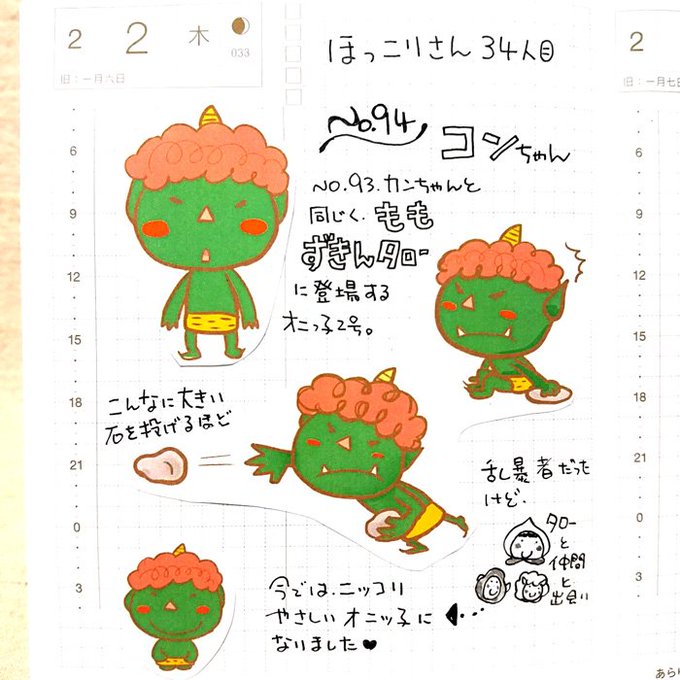 2 2 木
033
旧：一月六日
2
旧：一月七日
ほっこりさん34人目
No.94
コンちゃん
No.93.カンちゃんと
同じく、もも
ずきんタロー
に登場する
オニっ子2号。
こんなに大きい
石を投げるほど
乱暴者だった
けど、
タロー
と
仲間
と
出会い
今では、ニッコリ
やさしいオニッ子に
なりました♥
6
9
12
15
18
21
0
3
6
9
12
15
18
21
0
3